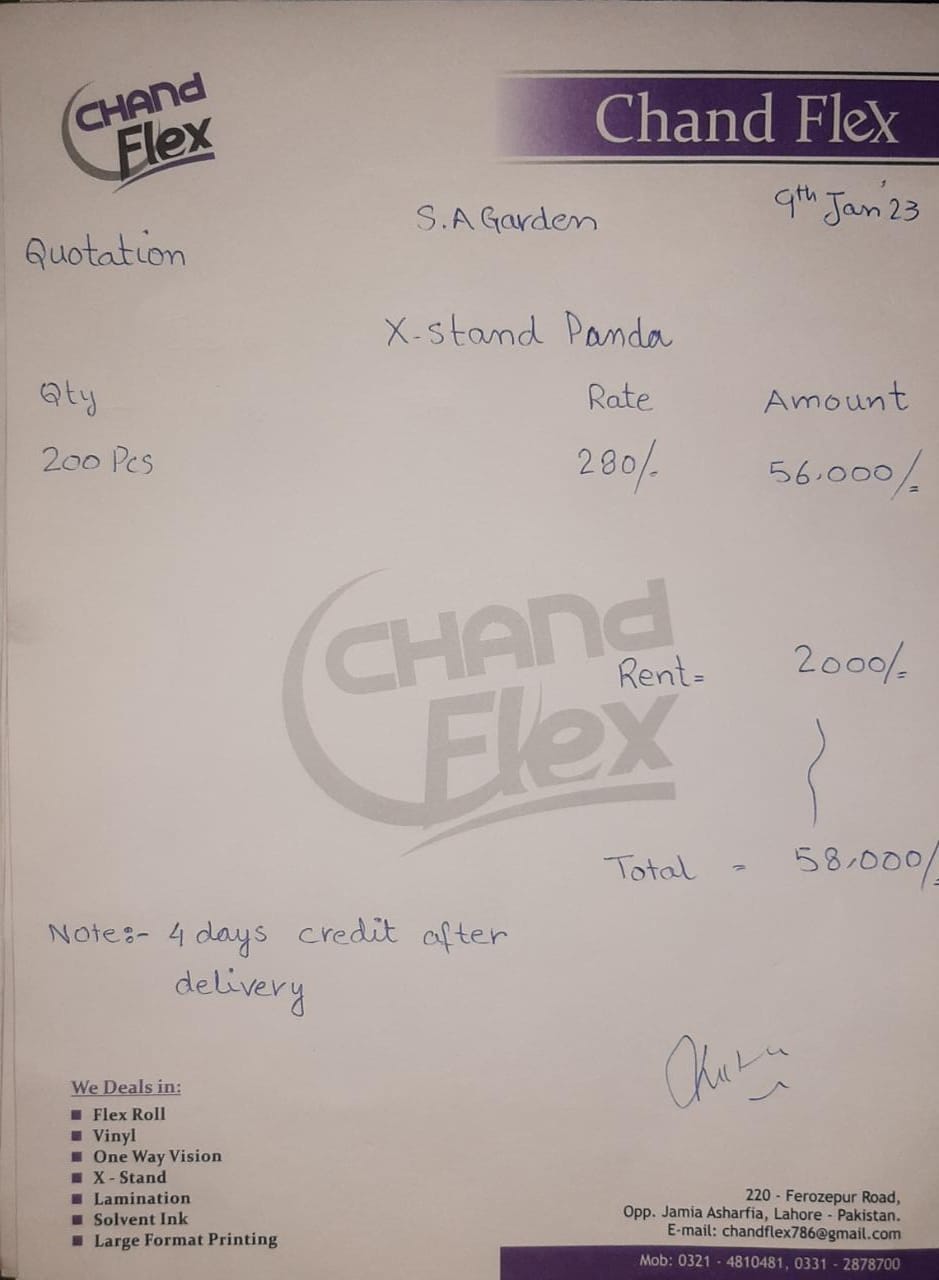 CHAND
Flex
Chand Flex
9th Jan'23
S.A Garden
Quotation
X-stand Panda
Qty Rate Amount
200 Pcs 280/- 56,000/=
CHAND
Flex
Rent= 2000/=
Total = 58,000/=
Note:- 4 days credit after
delivery
We Deals in:
Flex Roll
Vinyl
One Way Vision
X - Stand
Lamination
Solvent Ink
Large Format Printing
220 - Ferozepur Road,
Opp. Jamia Asharfia, Lahore - Pakistan.
E-mail: chandflex786@gmail.com
Mob: 0321 - 4810481, 0331 - 2878700